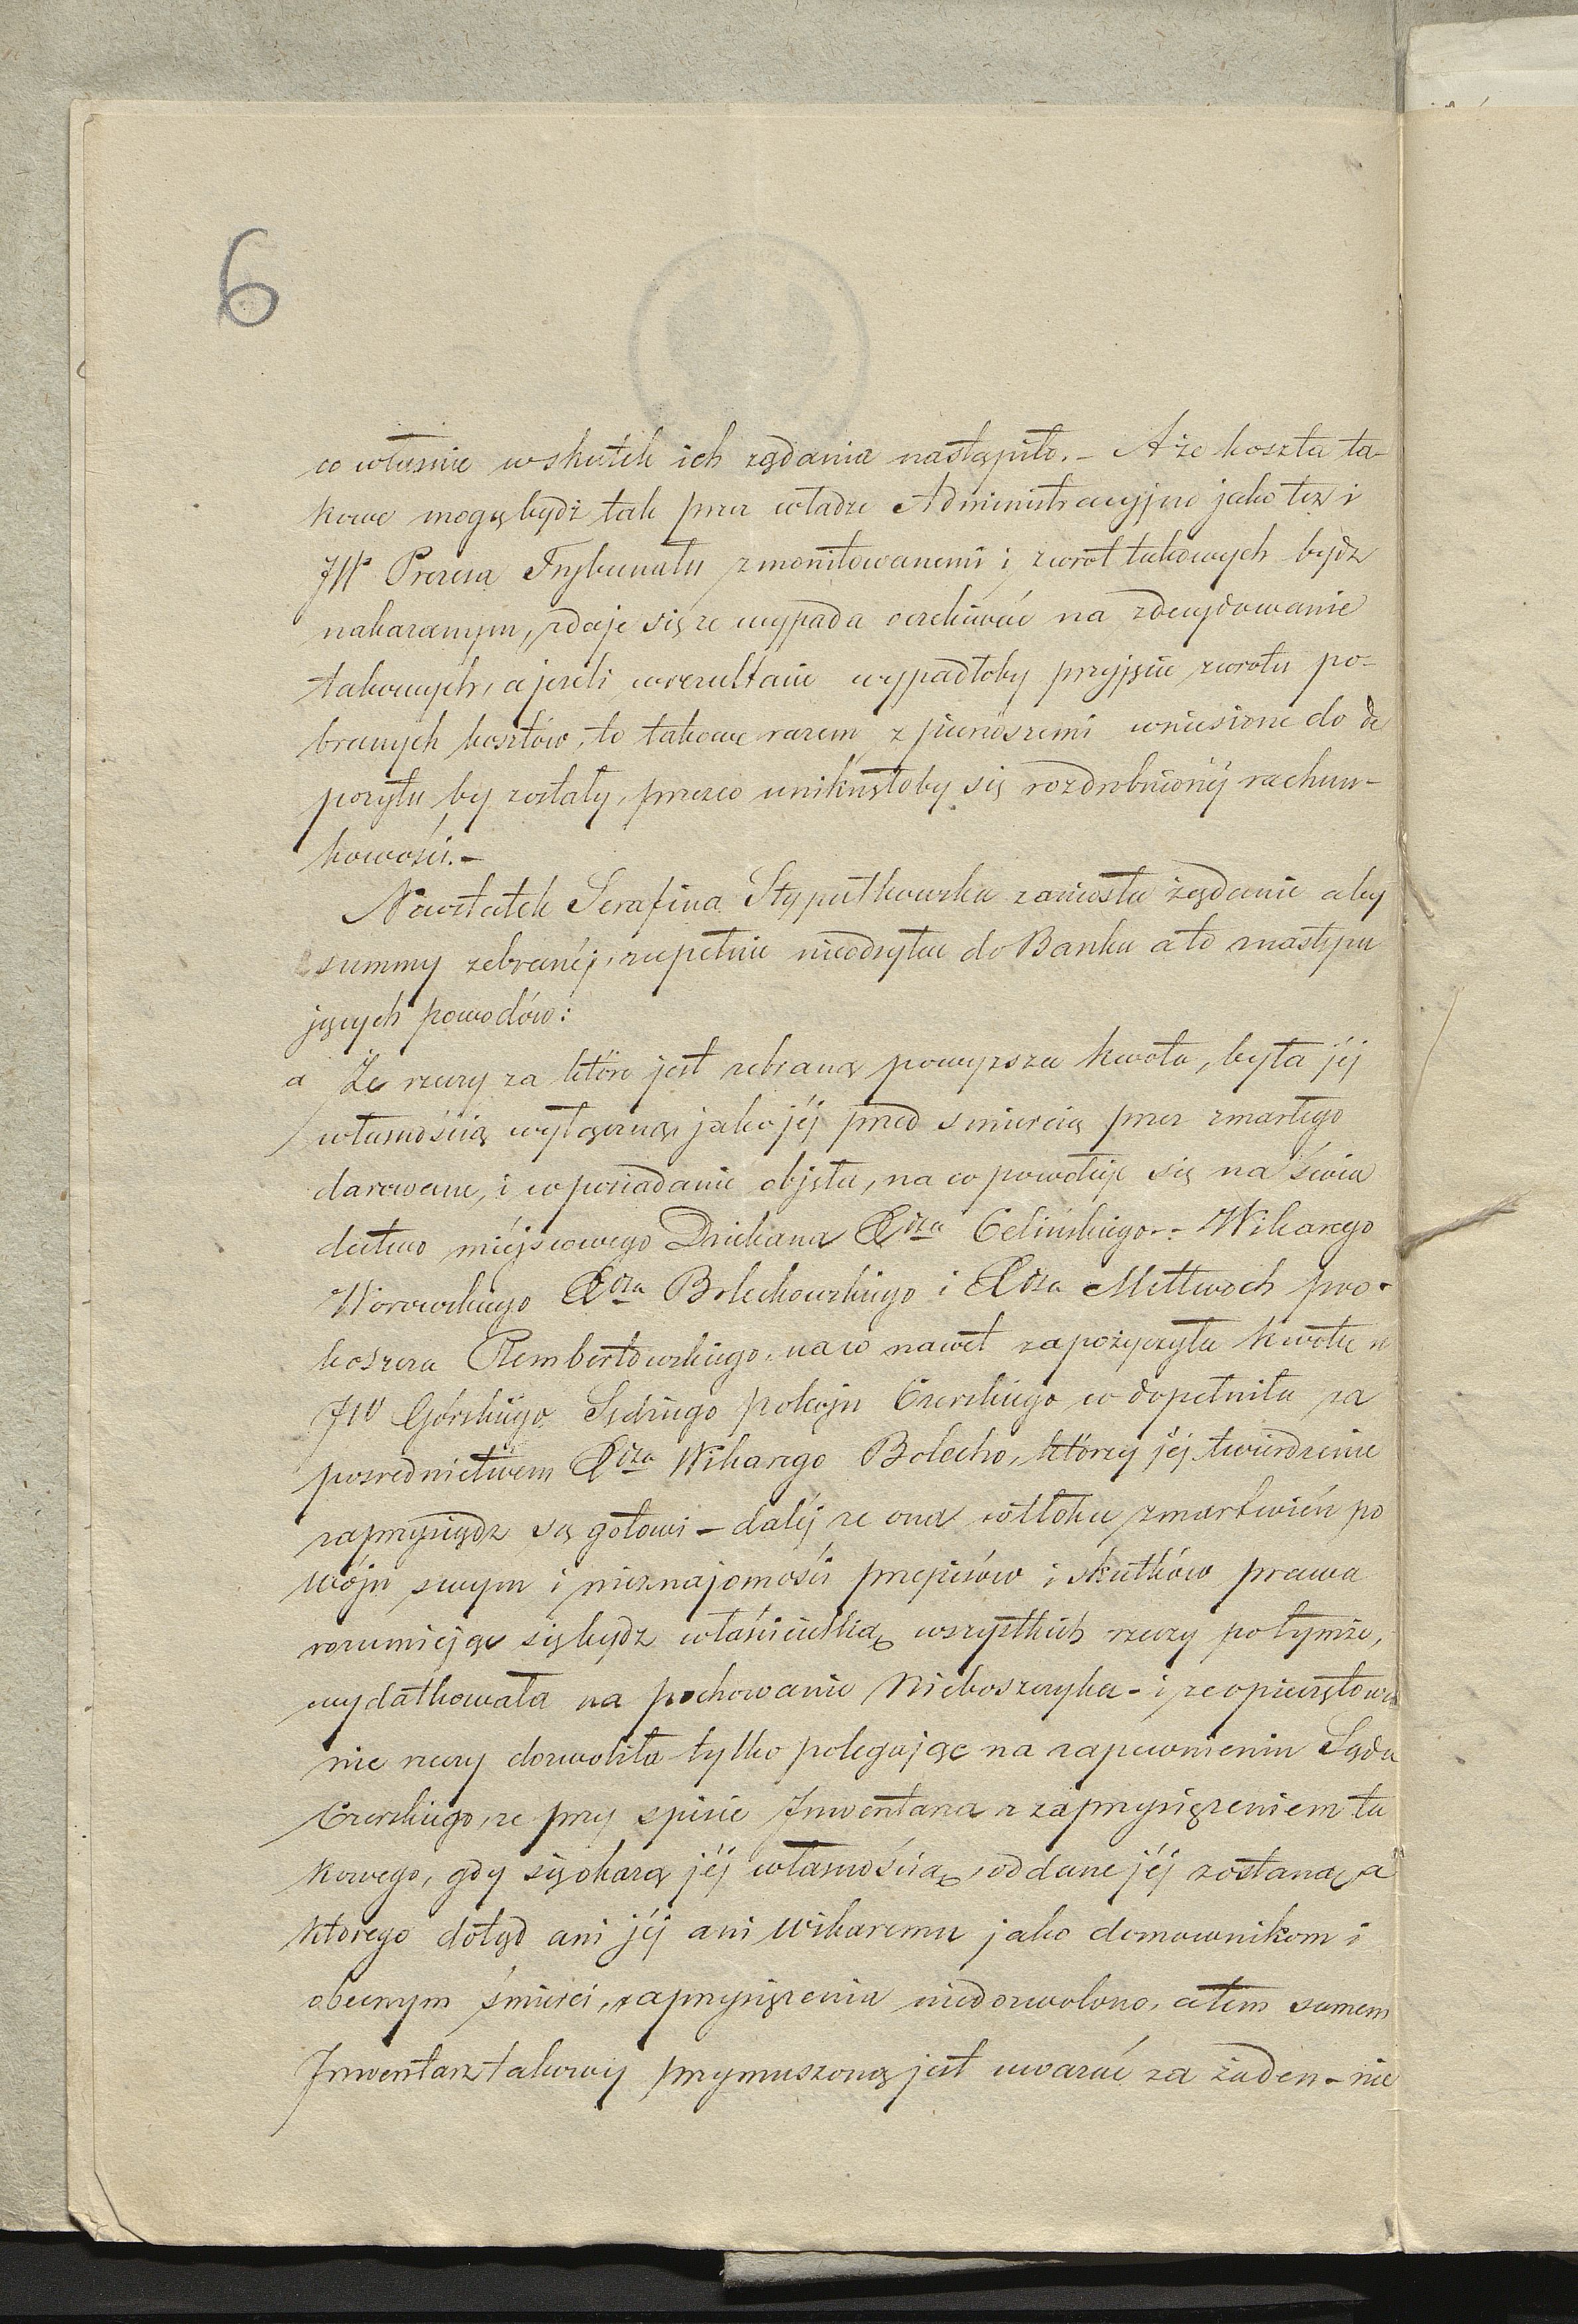 6
co właśnie wskutek ich rządania nastąpiło. – A że koszta ta-
kowe mogą bydź tak przez władze Administracyjne jako też i
JW Prezesa Trybunału zmonitowanemi i zwrot takowych bydź
nakazanym, zdaje się że wypada oczekiwać na zdecydowanie
takowych, a jeżeli w rezultacie wypadłoby przyjęcie zwrotu po-
branych kosztów, to takowe razem z pierwszemi wniesione do de
pozytu by zostały, przezco uniknęłoby się rozdrobnionéj rachun-
kowości. –
Nawstatek Serafina Stypułkowska zaniosła żądanie aby
summy zebranéj, zupełnie nieodsyłać do Banku a to z następu
jących powodów:
a Że rzeczy za które jest zebraną powyższa kwota, była jéj
własnością wyłączną, jako jéj przed smiercią przez zmarłego
darowane, i w posiadanie objęte, na co powołuje się na świa
dectwo miéjscowego Dziekana Xdza Celińskiego – Wikarego
Worowskiego Xdza Bolechowskiego i Xdza Mittwoch pro-
boszcza Rembertowskiego, na co nawet zapożyczyła kwotę u
JW Górskiego Sędziego pokoju Czerskiego co dopełniła za
posrednictwem Xdza Wikarego Bolecho, którzy jéj twierdzenie
zaprzysiądz są gotowi – daléj że ona wtłoku zmartwień po
wóju swym i nieznajomości przepisów i skutków prawa
rozumiejąc się bydz właścicielką wszystkich rzeczy potymże,
wydatkowała na pochowanie Nieboszczyka – i że opieczętowa
nie rzeczy dozwoliła tylko polegając na zapewnieniu Sądu
Czerskiego, że przy spisie Inwentarza z zaprzysiężeniem ta
kowego, gdy się okażą jéj własnością, oddane jéj zostaną, a
którego dotąd ani jéj ani Wikaremu jako domownikom i
obecnym śmierci, zaprzysiężenia niedozwolono, a tem samem
Inwentarz takowy przymuszoną jest uważać za żaden – nie